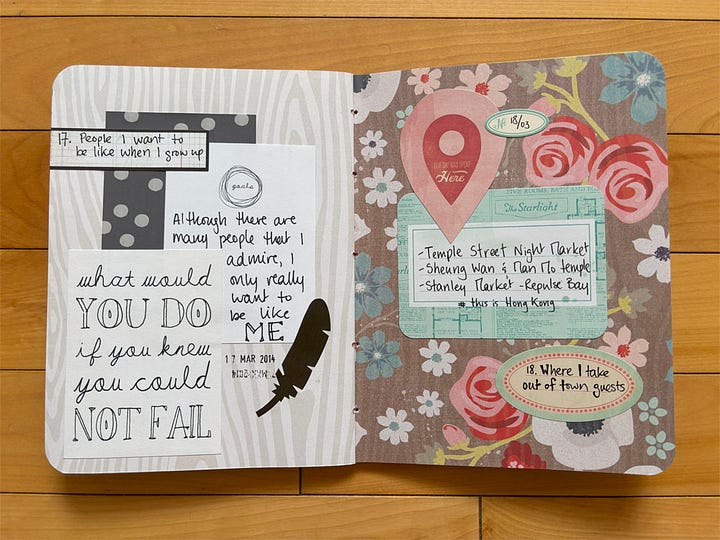 17. People I want to
be like when I grow up
goals
Although there are
many people that I
admire, I
only really
want to
be like
ME
17 MAR 2014
what would
YOU DO
if you knew
you could
NOT FAIL
No 18/03
Here
FIVE ROOMS, BATH AND
The Starlight
-Temple Street Night Market
-Sheung Wan & Man Mo temple
-Stanley Market - Repulse Bay
# this is Hong Kong
18. Where I take
out of town guests